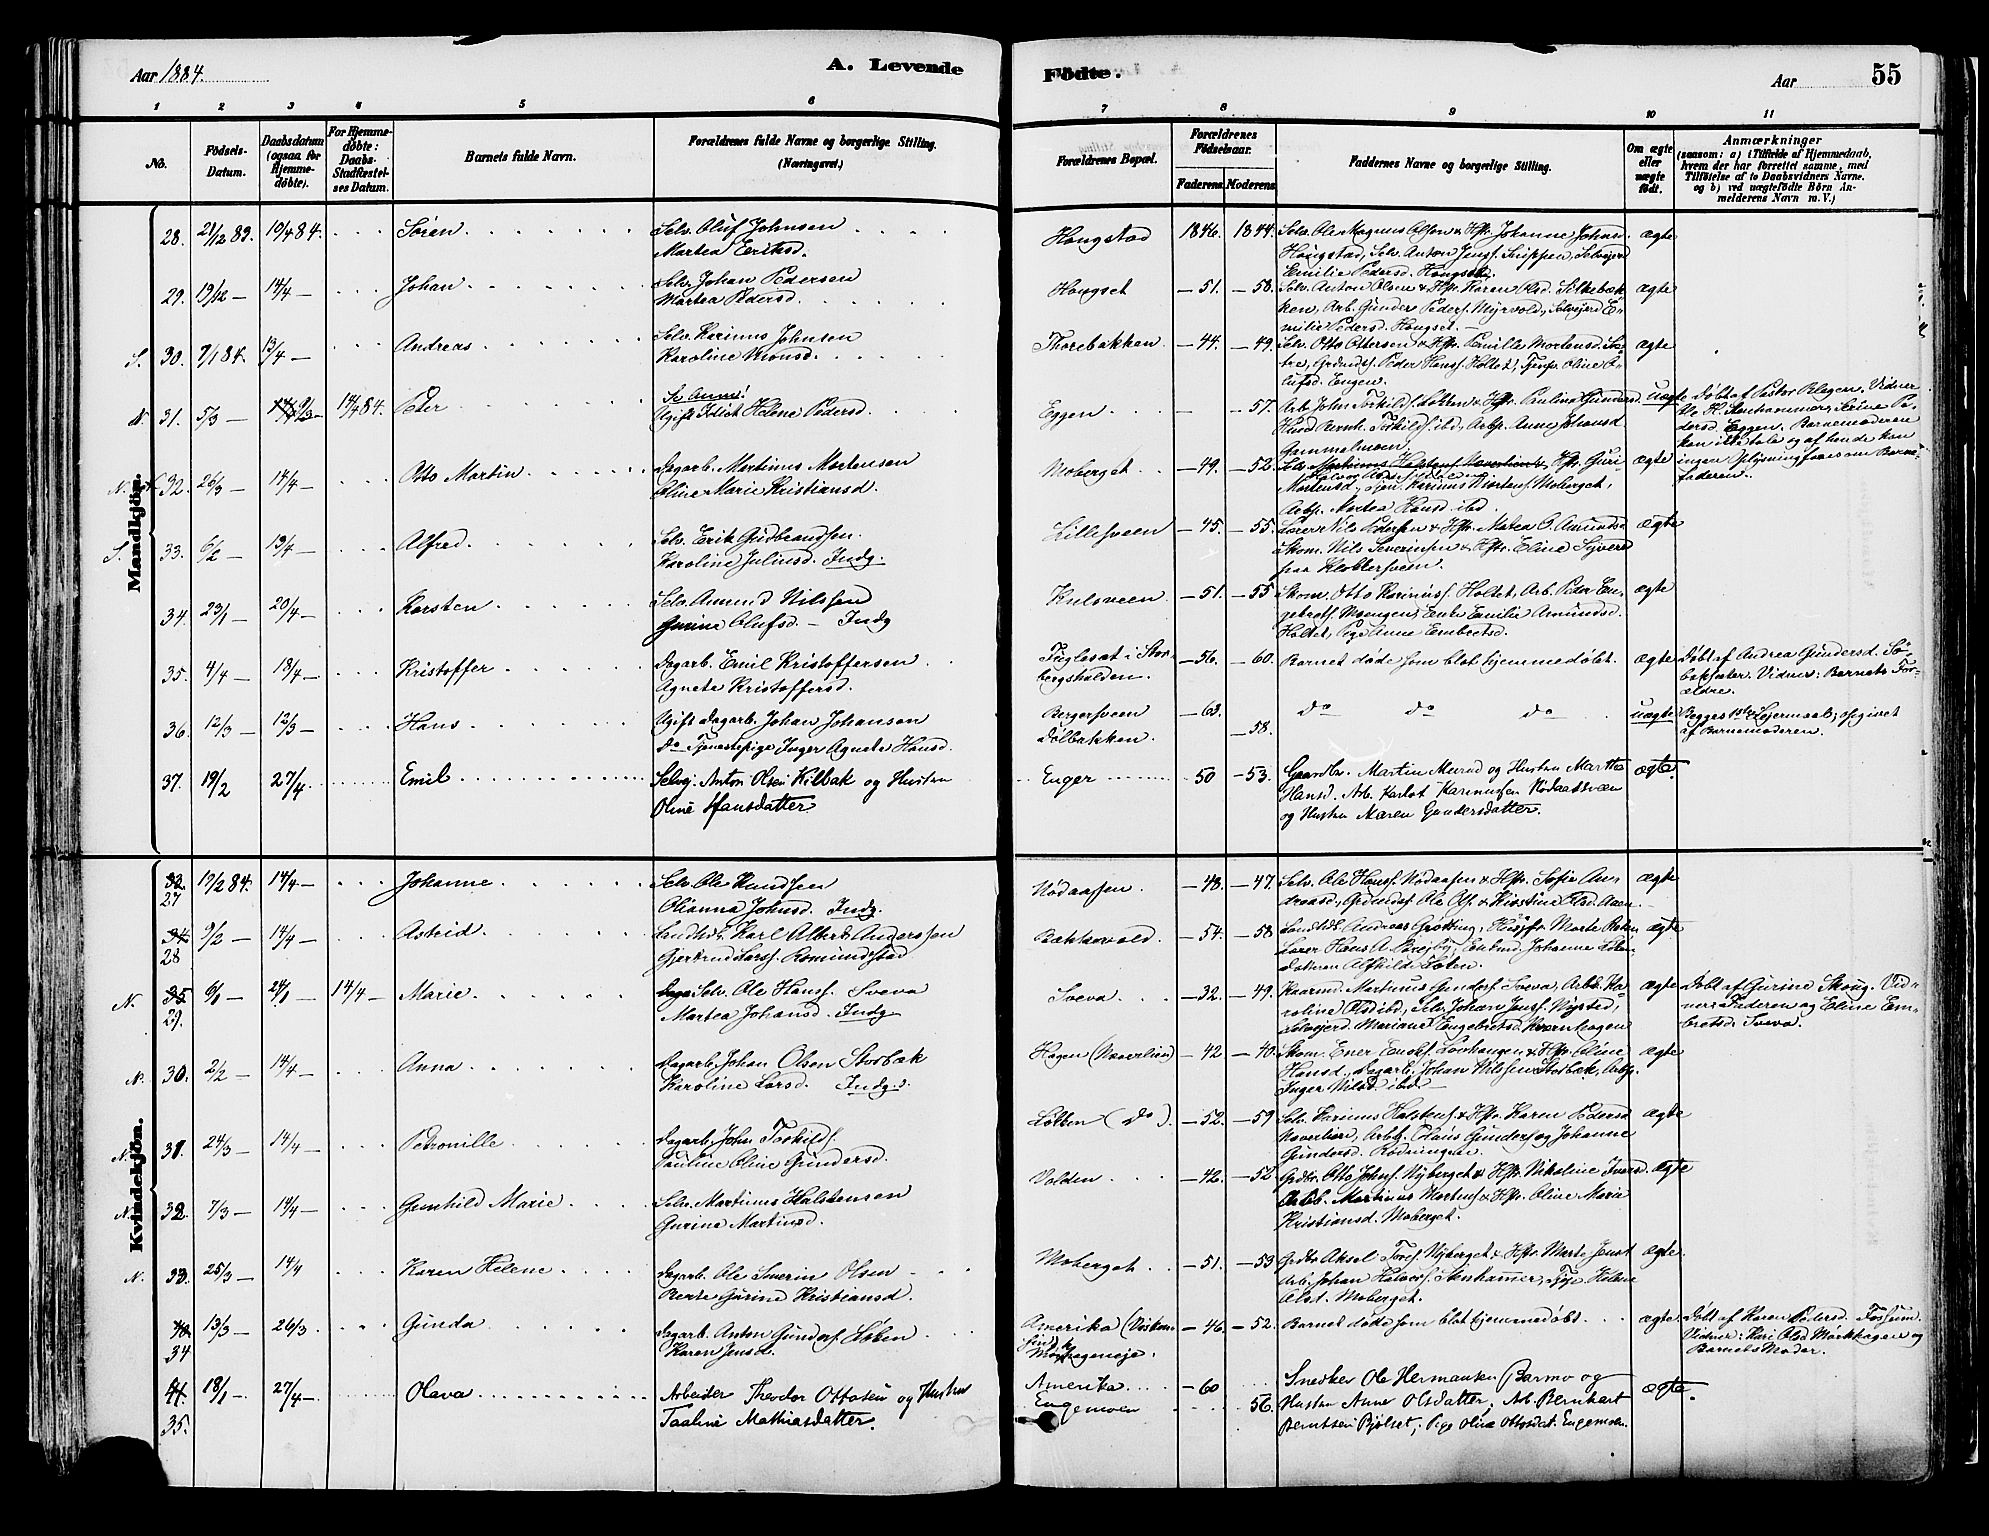 Aar 1884.
A. Levende
Födte.
Aar
55
1 2 3 4 5 6 7 8 9 10 11
No.
Födsels-Datum.
Daabsdatum (ogsaa for Hjemmedøbte).
For Hjemmedøbte: Daabs-Stadfæstelses Datum.
Barnets fulde Navn.
Forældrenes fulde Navne og borgerlige Stilling. (Næringsvei.)
Forældrenes Bopæl.
Forældrenes Födselsaar.
Faderens. Moderens
Faddernes Navne og borgerlige Stilling.
Om ægte eller uægte födt.
Anmærkninger
(saasom: a) i Tilfælde af Hjemmedaab, hvem der har forrettet samme, med Tilföielse af to Daabsvidners Navne. og b) ved uægtefödte Börn Anmelderens Navn m. V.)
Mandkjön.
28. 21/12 83. 10/4 84. Søren
Selv. Oluf Johnsen
Martea Eriksd.
Hougstad 1846. 1844.
Selv. Ole Magnus Olsen & Hstr. Johanne Johnsd.
Hougstad, Selv. Anton Jenss. Snippen, Selvejerd
Emilie Pedersd. Hougset.
ægte
29. 19/12 — 14/4 — Johan
Selv. Johan Pedersen
Martea Pedersd.
Hougset — 51. — 58.
Selv. Anton Olsen & Hstr. Karen Olsd. Silkebæk-
ken, Arb. Gunder Peders. Myrvold, Selvejerd E-
milie Pedersd. Hougset.
ægte
S. 30. 7/1 84. 13/4 — Andreas
Selv. Karinus Johnsen
Karoline Monsd.
Thorebakken — 44. — 49.
Selv. Otto Ottersen & Hstr. Pernille Mortensd.
Peder Hanss. Holtet, Tjenp. Oline O-
lufsd. Engen.
ægte
N. 31. 5/3 — 9/3 — 14/4 84. Peder
Se Anm!
Ugift Idiot Helene Pedersd.
Eggen — 57.
Arb. John Torkilds. Løkken & Hstr. Pauline Gundersd
Bernh. Torkilds. ibd, Arbp. Anne Johansd
Gammelmoen
uægte
Døbt af Pastor Blagen. Vidner
Stenhammer, Serine Pe-
dersd. Eggen. Barnemoderen
kan ikke tale og af hende kan
ingen Oplysning faaes om Barne-
faderen.
N. 32. 26/3 — 14/4 — Otto Martin
Dagarb. Martinus Mortensen
Oline Marie Kristiansd.
Moberget — 49. — 52.
Selv. Martinus Halstens. Næverlien & Hstr. Guri-
Mortensd., Karinus Mortens. Moberget,
Arbp. Martea Hansd ibd.
ægte
S. 33. 6/2 — 13/4 — Alfred
Selv. Erik Gudbrandsen
Karoline Juliusd. Indg.
Lillesveen — 45. — 55.
Nils Pedersen & Hstr. Matea O. Amundsd
Skom. Nils Severinsen & Hstr. Eline Syversd
paa Klokkersveen.
ægte
34. 23/1 — 20/4 — Karsten
Selv. Amund Nilssen
Gurine Olufsd. — Indg
Kulsveen — 51. — 55
Skom. Otto Karinuss. Holtet, Arb. Peder En-
gebrets. Moengen, Enke Emilie Amundsd.
Holtet, Pige Anne Embretsd.
ægte
35. 4/4 — 18/4 — Kristoffer
Dagarb. Emil Kristoffersen
Agnete Kristoffersd.
Fuglesæt i Stor-
bergshalden. — 56. — 60.
Barnet døde som blot hjemmedøbt.
ægte
Døbt af Andrea Gundersd. Sø-
baksæter. Vidner: Barnets For-
ældre.
36. 12/3 — 12/3 — Hans
Ugift Dagarb. Johan Johansen
do Tjenestepige Inger Agnete Hansd.
Bergersveen — 63.
Dølbakken — 58.
do do do
uægte
Begges 1ste Lejermaal, opgivet
af Barnemoderen.
37. 19/2 27/4 Emil
Selvej. Anton Olsen Kilbak og Hustru
Oline Hansdatter
Enger 50 — 53.
Gaardbr. Martin Mærud og Hustru Marthe
Hansd. Arb. Karl Karinusen Rødaassveen
og Hustru Maren Gundersdatter.
ægte.
Kvindekjön.
33. 27 19/2 84. 14/4 — Johanne
Selv. Ole Knudsen
Olianna Johnsd. Indg.
Rødaasen — 48. — 47.
Selv. Ole Hanss. Rødaasen & Hstr. Sofie An-
dreasd, Ole Ols. & Kirstine Olsd. Aaen
ægte
34 28 9/2 — 14/4 — Astrid
Landhdl. Karl Albert Anderssen
Gjertrud Larss. Romundstad
Bækkevold. — 54. — 58
Landhdl. Andreas Grøtting, Husfr. Marte
Lærer Hans A. Johanne Løken
Alfhilde Løken.
ægte
N. 35 29. 6/1 — 24/1 — 14/4 — Marie
Selv. Ole Hanss. Sveva
Martea Johansd. Indg
Sveva — 32. — 49.
Martinus Gunders. Sveva, Arbk. Ka-
roline Olsd ibd, Selv. Johan Jenss. Nysted,
Selvejerd. Mariane Engebretsd. Kvernhagen
ægte
Døbt af Gurine Skoug. Vid-
ner: Faderen og Eline Em-
bretsd. Sveva.
N. 30. 2/2 — 14/4 — Anna
Dagarb. Johan Olsen Storbæk
Karoline Larsd. Indg.
Hagen (Næverlien) — 42 — 40.
Skom. Ener Løvhaugen & Hstr. Oline
Hansd., Dagarb. Johan Nilssen Storbæk, Arbp.
Inger Nilsd. ibd. —
ægte
N. 31. 24/3 — 14/4 — Petronille
Dagarb. John Torkilds.
Pauline Oline Gundersd.
Løkken (do). — 52. — 59
Selv. Karinus Halstens. & Hstr. Karen Pedersd
Næverlien, Arbg. Olaus Gunders. og Johanne
Gundersd. Rødningen.
ægte
N. 32. 7/3 — 14/4 — Gunhild Marie
Selv. Martinus Halstensen
Gurine Martinsd.
Volden — 42. — 52
Grdbr. Otto Johns. Nyberget & Hstr. Nikoline Iversd.
Arb. Martinus Mortens. & Hstr. Oline Marie
Kristiansd. Moberget.
ægte
N. 33. 25/3 — 14/4 Karen Helene
Dagarb. Ole Severin Olsen
Berte Gurine Kristiansd.
Moberget — 51. — 53
Grdbr Aksel Tores. Nyberget & Hstr. Marte Jensd
Arb. Johan Halvors. Stenhammer, Pige Helene
Olsd. Moberget.
ægte.
40 34 13/3 — 26/3. Gunda
Dagarb. Anton Gunders. Løken
Karen Jensd.
Amerika (Viskon-
sin)
Mørkhageneje. — 46. — 52.
Barnet døde som blot hjemmedøbt.
ægte.
Døbt af Karen Pedersd. Fossum.
Vidner: Kari Olsd Mørkhagen og
Barnets Moder.
41. 35. 18/1 — 27/4 — Olava
Arbeider Theodor Ottosen og Hustru
Taaline Mathiasdatter.
Amerika — 60
Engemoen 56.
Snedker Ole Hermansen Barmo og
Hustru Anne Olsdatter. Arb. Bernhart
Berntsen Bjølset, Pige Oline Ottosdat. Engemoen.
ægte.